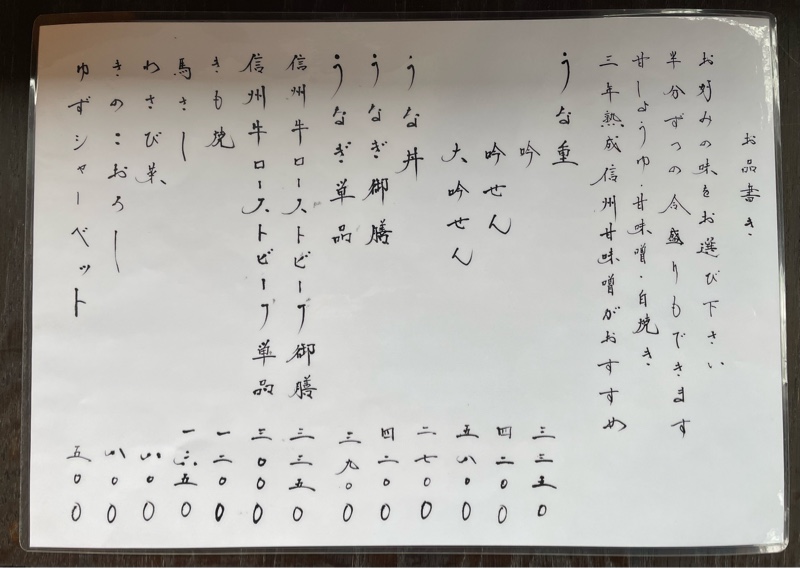 お品書き
お好みの味をお選び下さい
半分ずつの合盛りもできます
甘しょうゆ・甘味噌・白焼き
三年熟成信州甘味噌がおすすめ
うな重
吟 三三五〇
吟せん 四二〇〇
大吟せん 五八〇〇
うな丼 二七〇〇
うなぎ御膳 四二〇〇
うなぎ単品 三九〇〇
信州牛ローストビーフ御膳 三三五〇
信州牛ローストビーフ単品 三〇〇〇
きも焼 一二〇〇
馬さし 一六五〇
わさび菜 八〇〇
きのこおろし 八〇〇
ゆずシャーベット 五〇〇